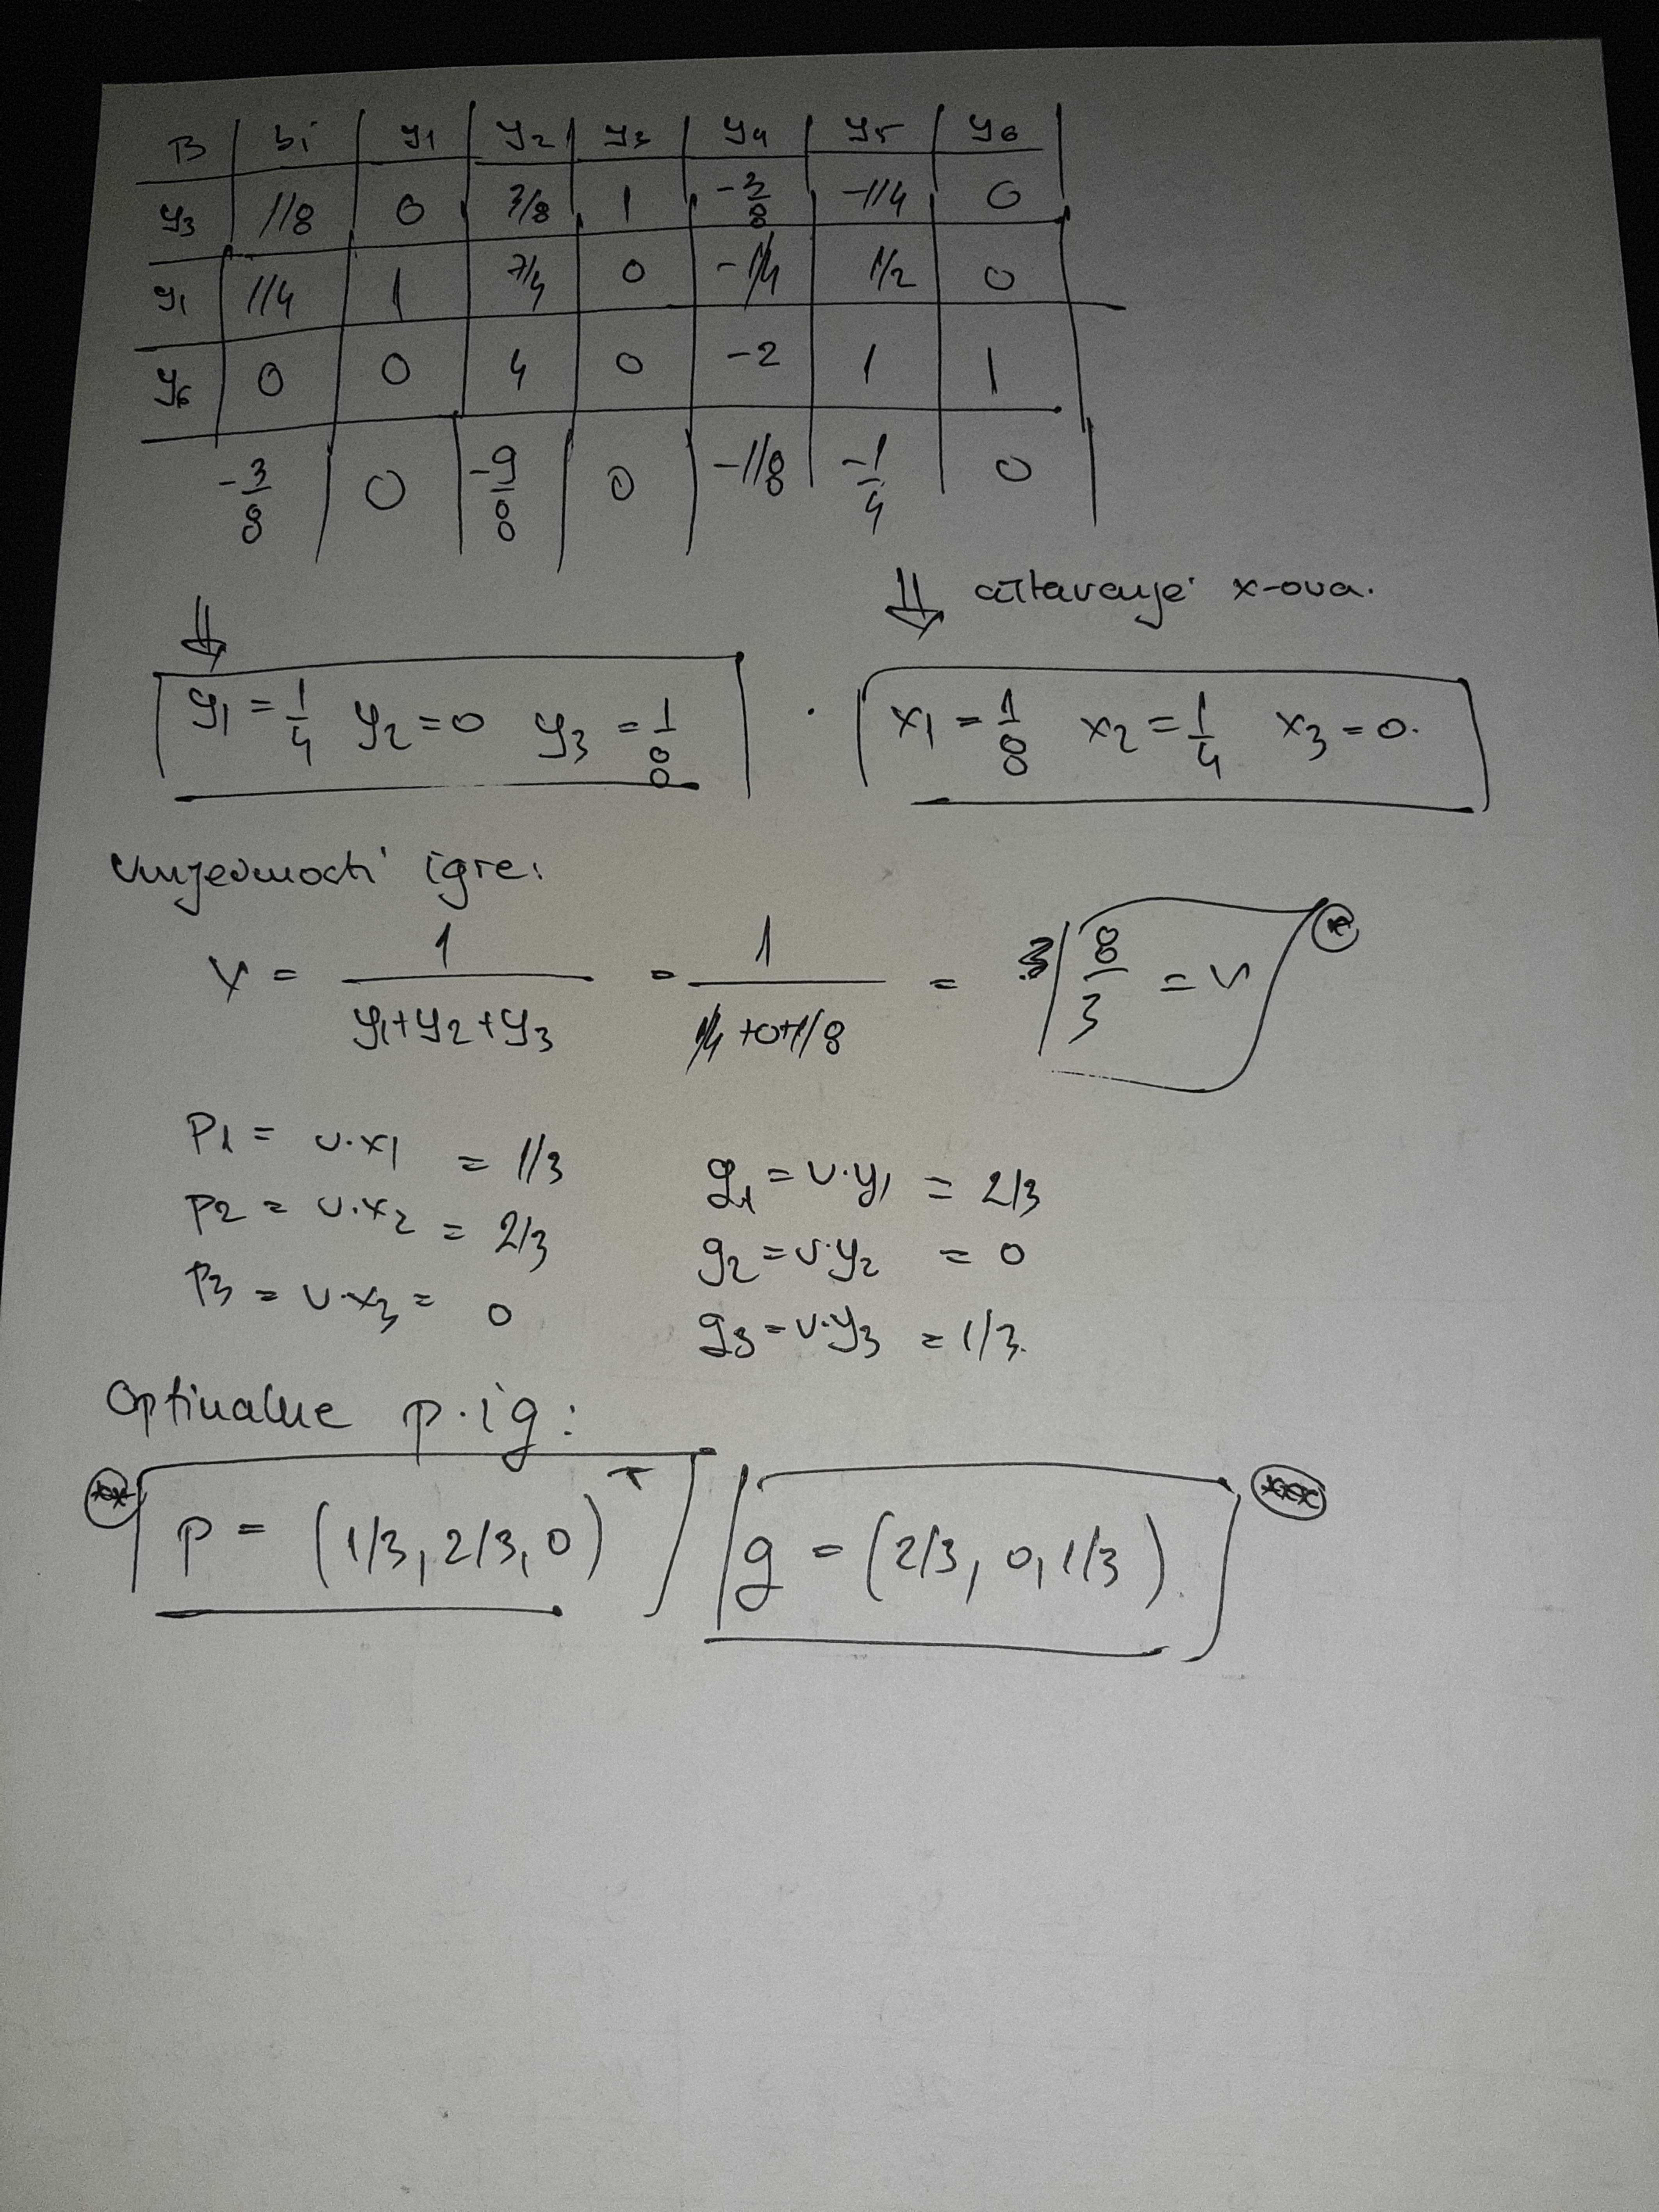 B bi y1 y2 y3 y4 y5 y6
y3 1/8 0 3/8 1 -3/8 -1/4 0
y1 1/4 1 7/4 0 -1/4 1/2 0
y6 0 0 4 0 -2 1 1
-3/8 0 -9/8 0 -1/8 -1/4 0
⇓ ⇓ očitavanje x-ova.
y1 = 1/4 y2 = 0 y3 = 1/8
x1 = 1/8 x2 = 1/4 x3 = 0.
Vrijednosti igre:
V = 1/(y1+y2+y3) = 1/(1/4+0+1/8) = 8/3 = v *
p1 = v·x1 = 1/3
p2 = v·x2 = 2/3
p3 = v·x3 = 0
g1 = v·y1 = 2/3
g2 = v·y2 = 0
g3 = v·y3 = 1/3.
Optimalne p i g:
** p = (1/3, 2/3, 0)^T
g = (2/3, 0, 1/3). ***